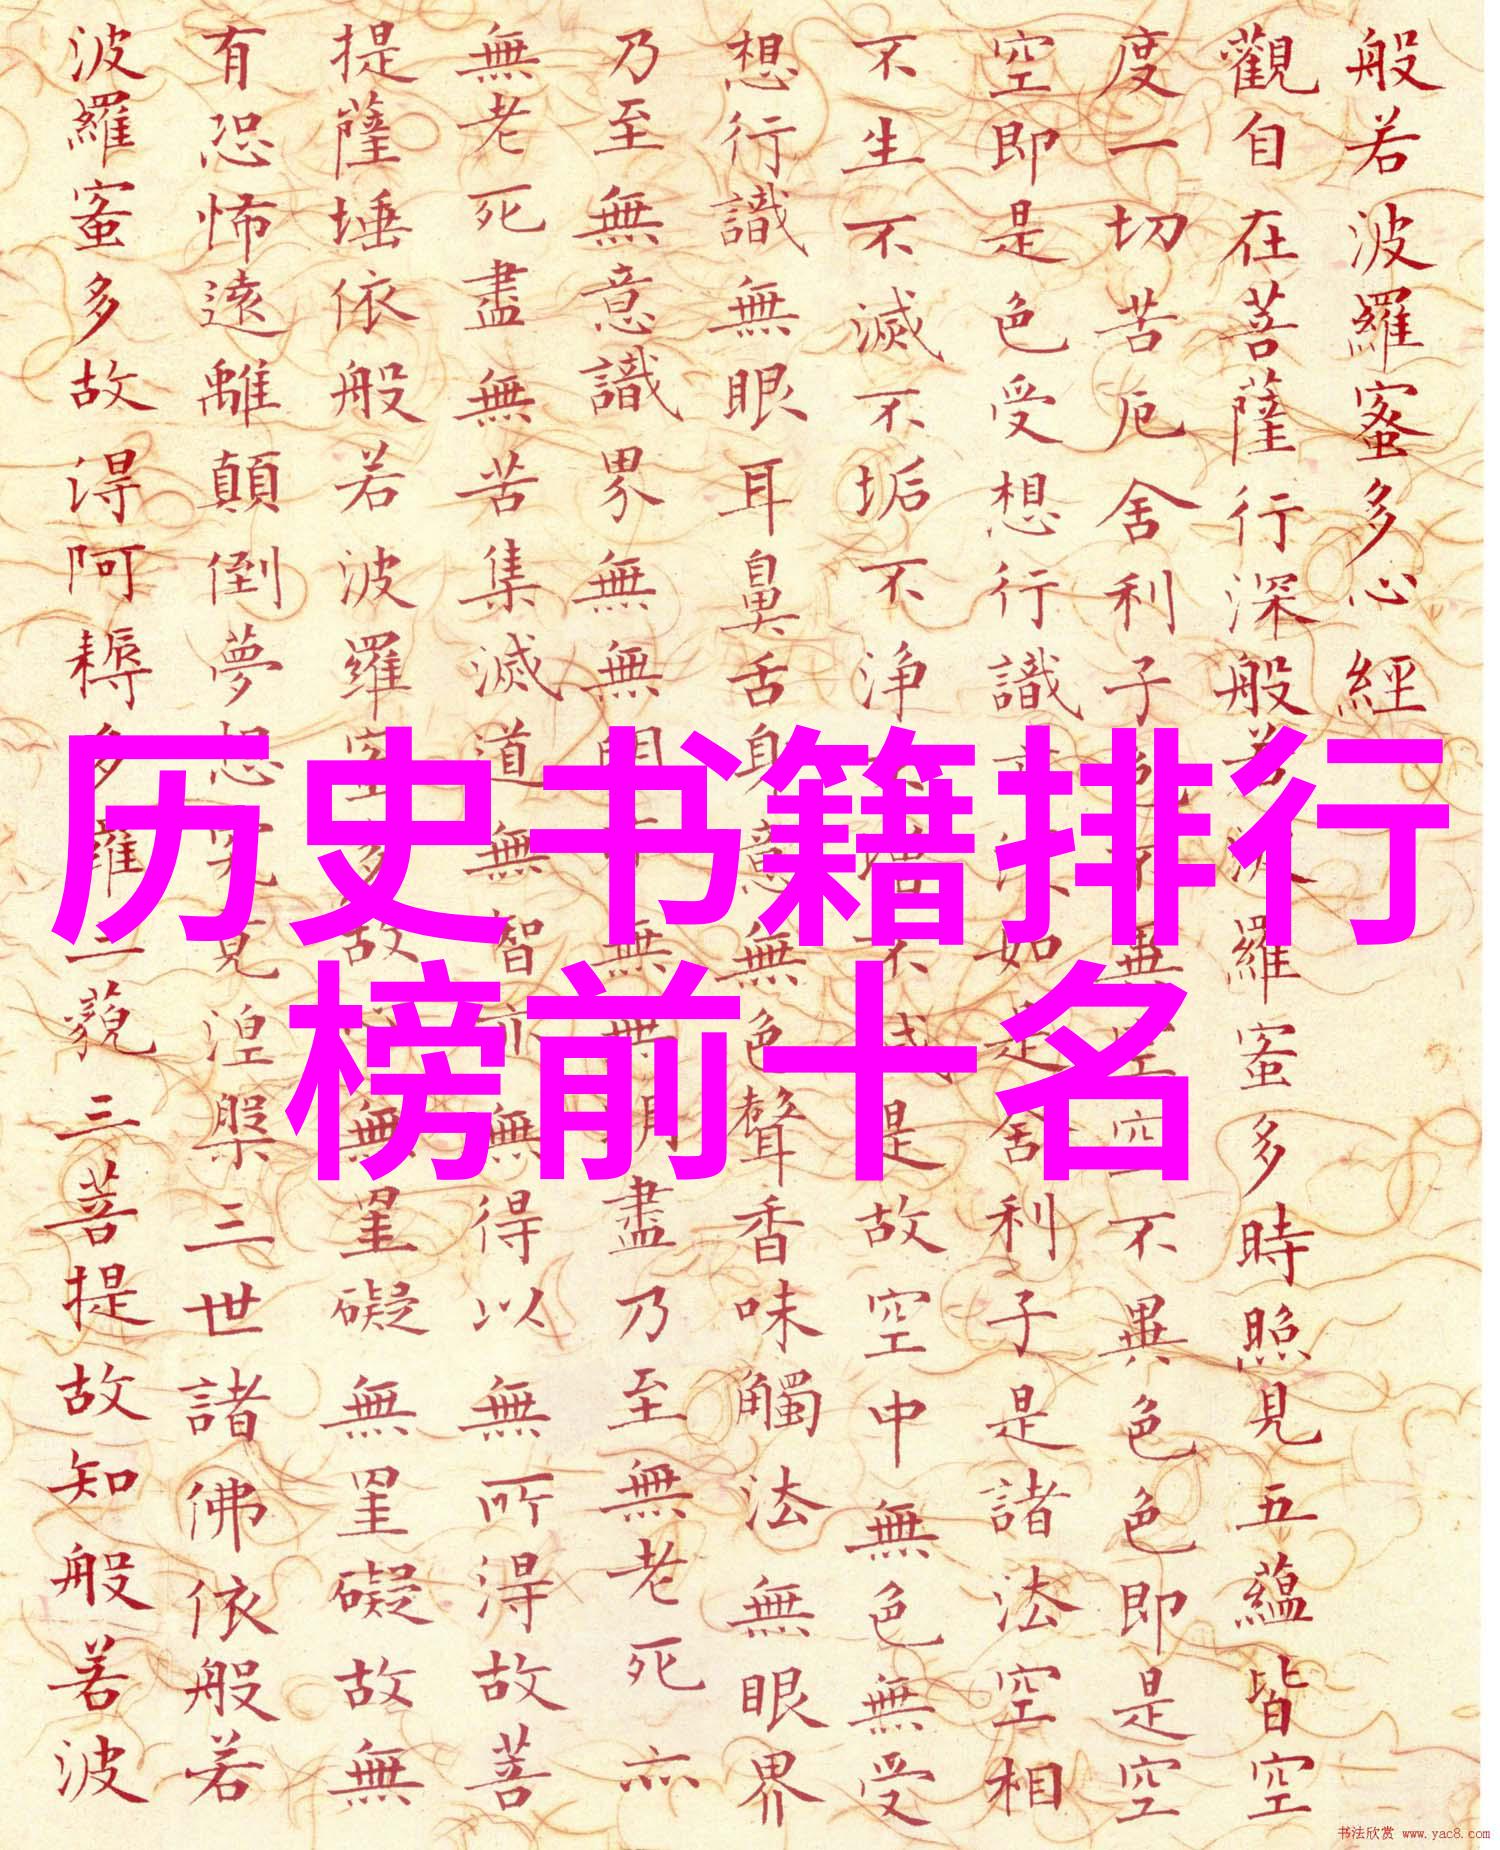 历史书籍排行
榜前十名
般若波羅蜜多心經
觀自在菩薩行深般若波羅蜜多時照見五蘊皆空
度一切苦厄舍利子色不異空空不異色色即是空
空即是色受想行識亦復如是舍利子是諸法空相
不生不滅不垢不浄不增不減是故空中無色無受
想行識無眼耳鼻舌身意無色聲香味觸法無眼界
乃至無意識界無無明亦無無明盡乃至無老死亦
無老死盡無苦集滅道無智亦無得以無所得故菩
提薩埵依般若波羅蜜多故心無罣礙無罣礙故無
有恐怖遠離顛倒夢想究竟涅槃三世諸佛依般若
波羅蜜多故得阿耨多羅三藐三菩提故知般若波
书法欣赏 www.yac8.com